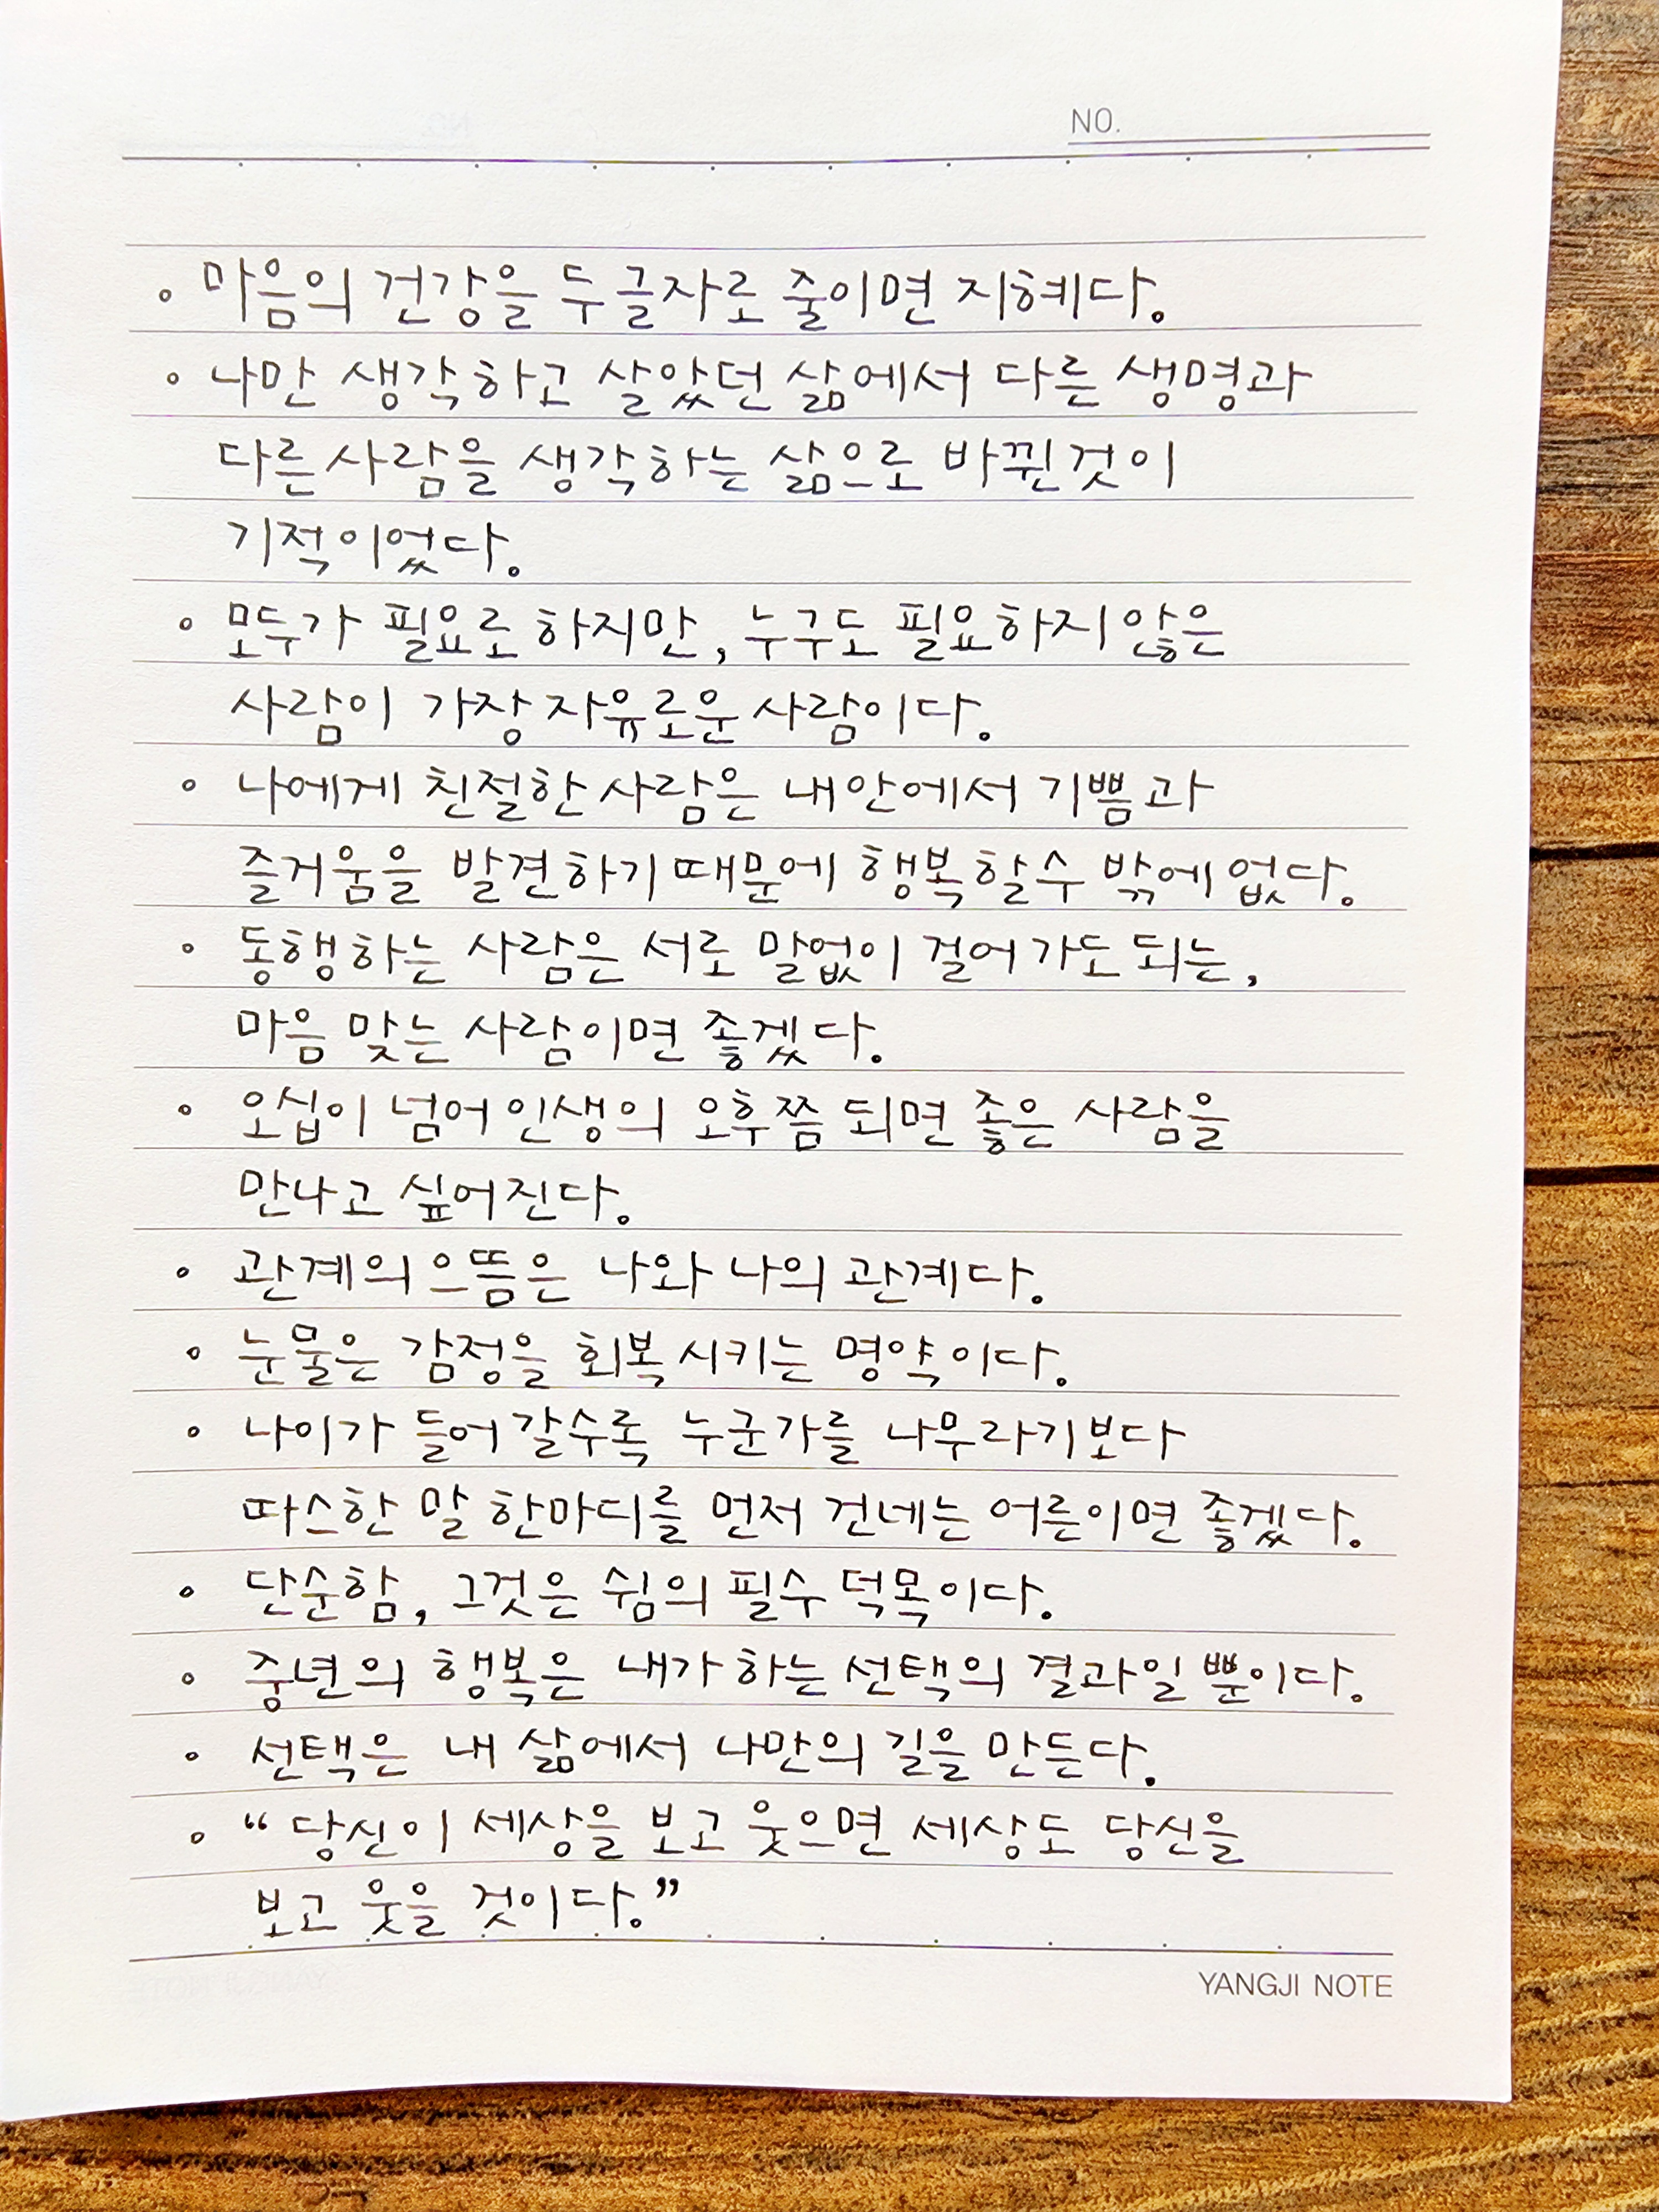 NO.
◦ 마음의 건강을 두 글자로 줄이면 지혜다.
◦ 나만 생각하고 살았던 삶에서 다른 생명과
다른 사람을 생각하는 삶으로 바뀐것이
기적이었다.
◦ 모두가 필요로 하지만, 누구도 필요하지 않은
사람이 가장 자유로운 사람이다.
◦ 나에게 친절한 사람은 내 안에서 기쁨과
즐거움을 발견하기 때문에 행복할수 밖에 없다.
◦ 동행하는 사람은 서로 말없이 걸어가도 되는,
마음 맞는 사람이면 좋겠다.
◦ 오십이 넘어 인생의 오후쯤 되면 좋은 사람을
만나고 싶어진다.
◦ 관계의 으뜸은 나와 나의 관계다.
◦ 눈물은 감정을 회복시키는 명약이다.
◦ 나이가 들어 갈수록 누군가를 나무라기보다
따스한 말 한마디를 먼저 건네는 어른이면 좋겠다.
◦ 단순함, 그것은 쉼의 필수 덕목이다.
◦ 중년의 행복은 내가 하는 선택의 결과일 뿐이다.
◦ 선택은 내 삶에서 나만의 길을 만든다.
◦ “당신이 세상을 보고 웃으면 세상도 당신을
보고 웃을 것이다.”
YANGJI NOTE